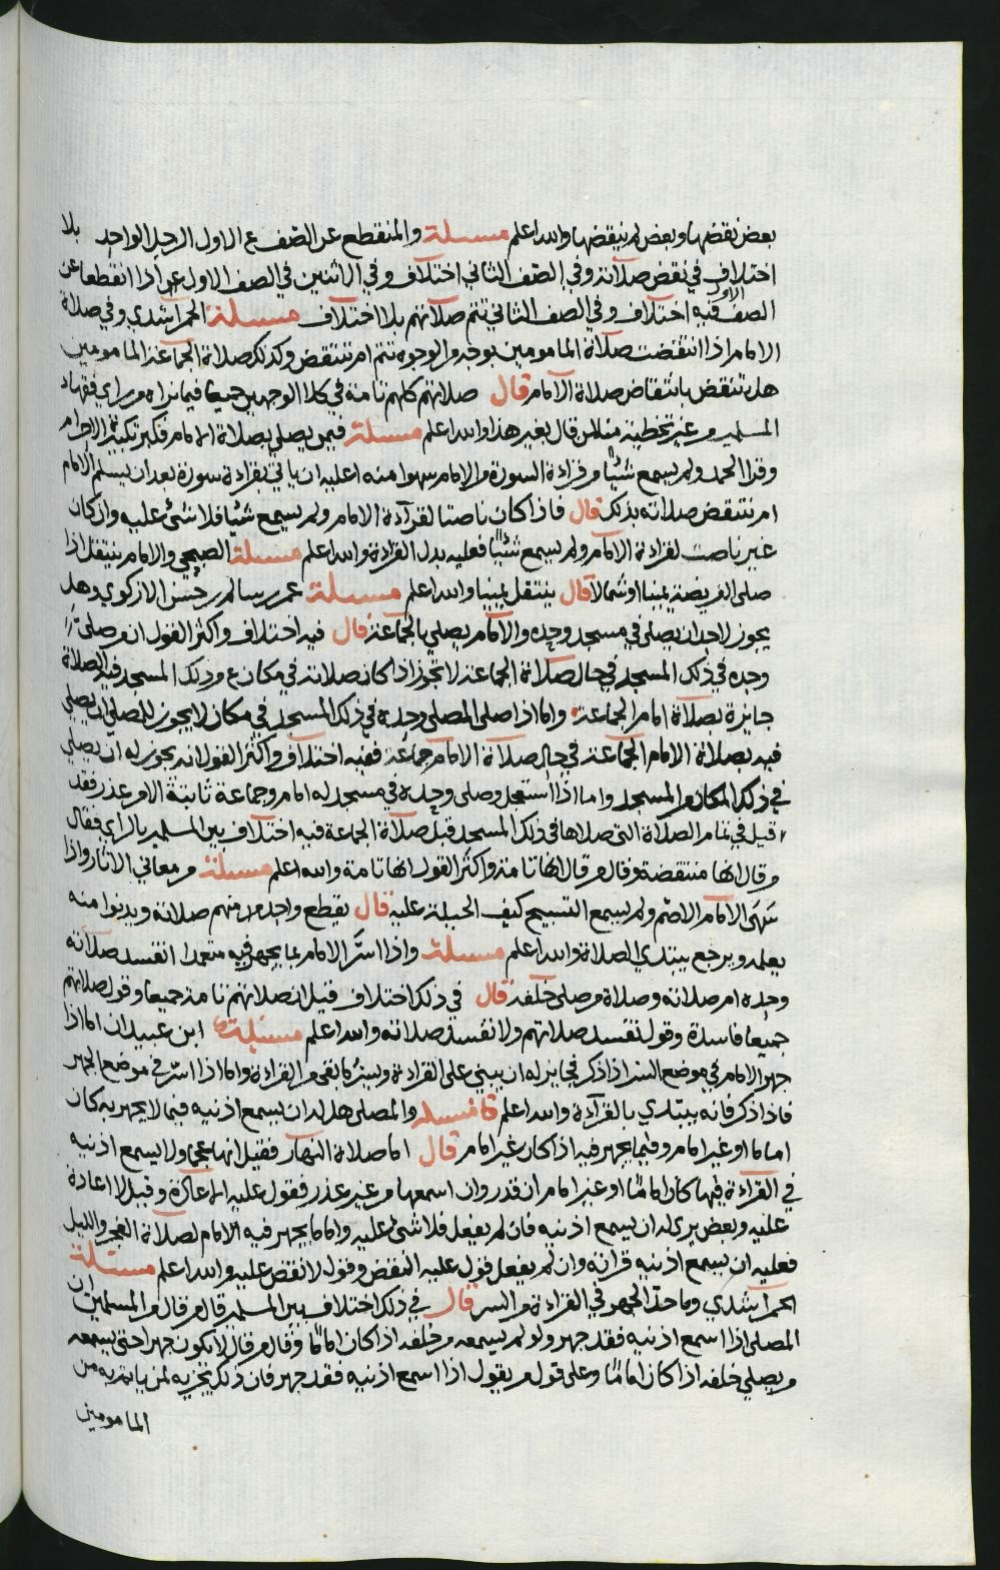 بعض نقضها وبعض لم ينقضها والله اعلم مسئلة والمنقطع عن الصف ع الاول الرجل الواحد بلا
اختلاف في نقض صلاته وفي الصف الثاني اختلاف وفي الاثنين في الصف الاول اذا انقطعا عن
الصف الاول فيه اختلاف وفي الصف الثاني تتم صلاتهم بلا اختلاف مسئلة الحمراشدي وفي صلاة
الامام اذا انتقضت صلاة المامومين بوجه من الوجوه تتم ام تنتقض وكذلك صلاة الجماعة المامومين
هل تنتقض بانتقاض صلاة الامام قال صلاتهم كلهم تامة في كلا الوجهين جميعا فيما نراه من راي فقهاء
المسلمين من غير تخطية منا لمن قال بغير هذا والله اعلم مسئلة فيمن يصلي بصلاة الامام فكبر تكبيرة الاحرام
وقرا الحمد ولم يسمع شيئا من قراءة السورة من الامام سهوا منه اعليه ان ياتي بقراءة سورة بعد ان يسلم الامام
ام تنتقض صلاته بذلك قال فاذا كان ناصتا لقراءة الامام ولم يسمع شيئا فلا شئ عليه وان كان
غير ناصت لقراءة الامام ولم يسمع شيئا فعليه بدل القراءة والله اعلم مسئلة الصبحي والامام ينتقل اذا
صلى الفريضة يمينا او شمالا قال ينتقل يمينا والله اعلم مسئلة عمر بن سالم بن حسن الازكوي وهل
يجوز لاحد ان يصلي في مسجد وحده والامام يصلي بالجماعة قال فيه اختلاف واكثر القول ان من صلى
وحده في ذلك المسجد في حال صلاة الجماعة لا تجوز اذا كان صلاته في مكان ع من ذلك المسجد فيه الصلاة
جايزة بصلاة امام الجماعة واما اذا صلى المصلي وحده في ذلك المسجد في مكان لا يجوز للمصلي ان يصلي
فيه بصلاة الامام الجماعة في حال صلاة الامام جماعة ففيه اختلاف واكثر القول انه يجوز له ان يصلي
في ذلك المكان من المسجد واما اذا استعجل وصلى وحده في مسجد له امام وجماعة ثابتة الا من عذر فقد
قيل في تمام الصلاة التي صلاها في ذلك المسجد قبل صلاة الجماعة فيه اختلاف بين المسلمين بالراي فقال
من قال انها منتقضة وقال من قال انها تامة واكثر القول انها تامة والله اعلم مسئلة ومن معاني الاثار واذا
سهى الامام الاصم ولم يسمع التسبيح كيف الحيلة عليه قال يقطع واحد منهم صلاته ويدنوا منه
يعلمه ويرجع يبتدي الصلاة والله اعلم مسئلة واذا اسر الامام بما يجهر فيه متعمدا اتفسد صلاته
وحده ام صلاته وصلاة من صلى خلفه قال في ذلك اختلاف قيل ان صلاتهم تامة جميعا وقول صلاتهم
جميعا فاسدة وقول تفسد صلاتهم ولا تفسد صلاته والله اعلم مسئلة ابن عبيدان اما اذا
جهر الامام في موضع السر اذا ذكر فجايز له ان يبني على القراءة ويسر ما بقى من القراءة واما اذا اسر في موضع الجهر
فاذا ذكر فانه يبتدي بالقراءة والله اعلم مسئلة والمصلي هل له ان يسمع اذنيه فيما لا يجهر به كان
اماما او غير امام وفيما يجهر فيه اذا كان غير امام قال اما صلاة النهار فقيل انها عجما ولا يسمع اذنيه
في القراءة فيها كان اماما او غير امام ان قدر وان اسمعها من غير عذر فقول عليه الاعادة وقيل لا اعادة
عليه وبعض يرى له ان يسمع اذنيه فان لم يفعل فلا شئ عليه واما ما يجهر فيه الامام لصلاة الفجر والليل
فعليه ان يسمع اذنيه قراته وان لم يفعل فقول عليه النقض وقول لا نقض عليه والله اعلم مسئلة
الحمراشدي وما حد الجهر في القراءة من السر قال في ذلك اختلاف بين المسلمين قال من قال من المسلمين ان
المصلي اذا اسمع اذنيه فقد جهر ولو لم يسمعه من خلفه اذا كان اماما وقال من قال لا يكون جهرا حتى يسمعه
من يصلي خلفه اذا كان اماما وعلى قول من يقول اذا اسمع اذنيه فقد جهر فان ذلك يجزيه لمن ياتم به من
المامومين